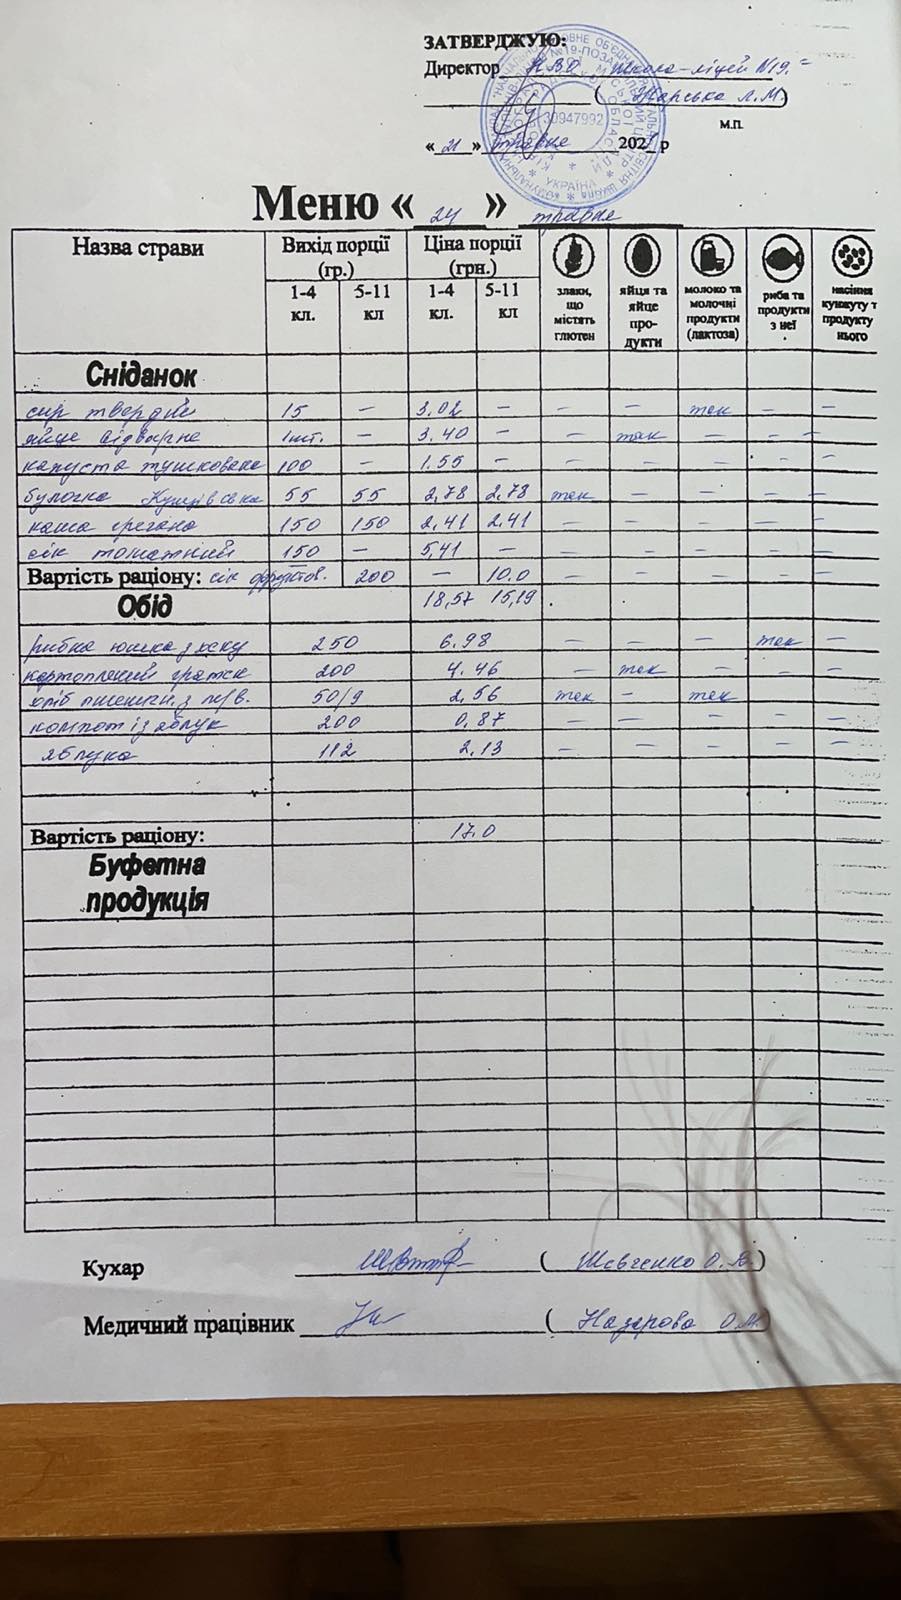 ЗАТВЕРДЖУЮ:
Директор НВО школа-ліцей №19
( Жарська Л.М.)
М.П.
«21» травня 2021 р
30947992
УКРАЇНА
Меню « 24 » травня
Назва страви Вихід порції (гр.) Ціна порції (грн.) злаки, що містять глютен яйця та яйце про- дукти молоко та молочні продукти (лактоза) риба та продукти з неї насіння кунжуту т продукту нього
1-4 кл. 5-11 кл 1-4 кл. 5-11 кл
Сніданок
сир твердий 15 – 3.02 – – – так – –
яйце відварне 1шт. – 3.40 – – так – – –
капуста тушкована 100 – 1.55 – – – – – –
булочка 55 55 2,78 2,78 так – – – –
каша гречана 150 150 2,41 2,41 – – – – –
сік томатний 150 – 5,41 – – – – – –
Вартість раціону: сік фруктов. 200 – 10.0 – – – – –
Обід 18,57 15,19
рибна юшка з хеку 250 6.98 – – – так –
картопляний гратен 200 4.46 – так – – –
хліб пшеничн. з м/в. 50/9 2,56 так – так
компот із яблук 200 0,87 – – – – –
яблука 112 2.13 – – – – –
Вартість раціону: 17.0
Буфетна
продукція
Кухар ( Шевченко О.В.)
Медичний працівник ( Назарова О.М.)